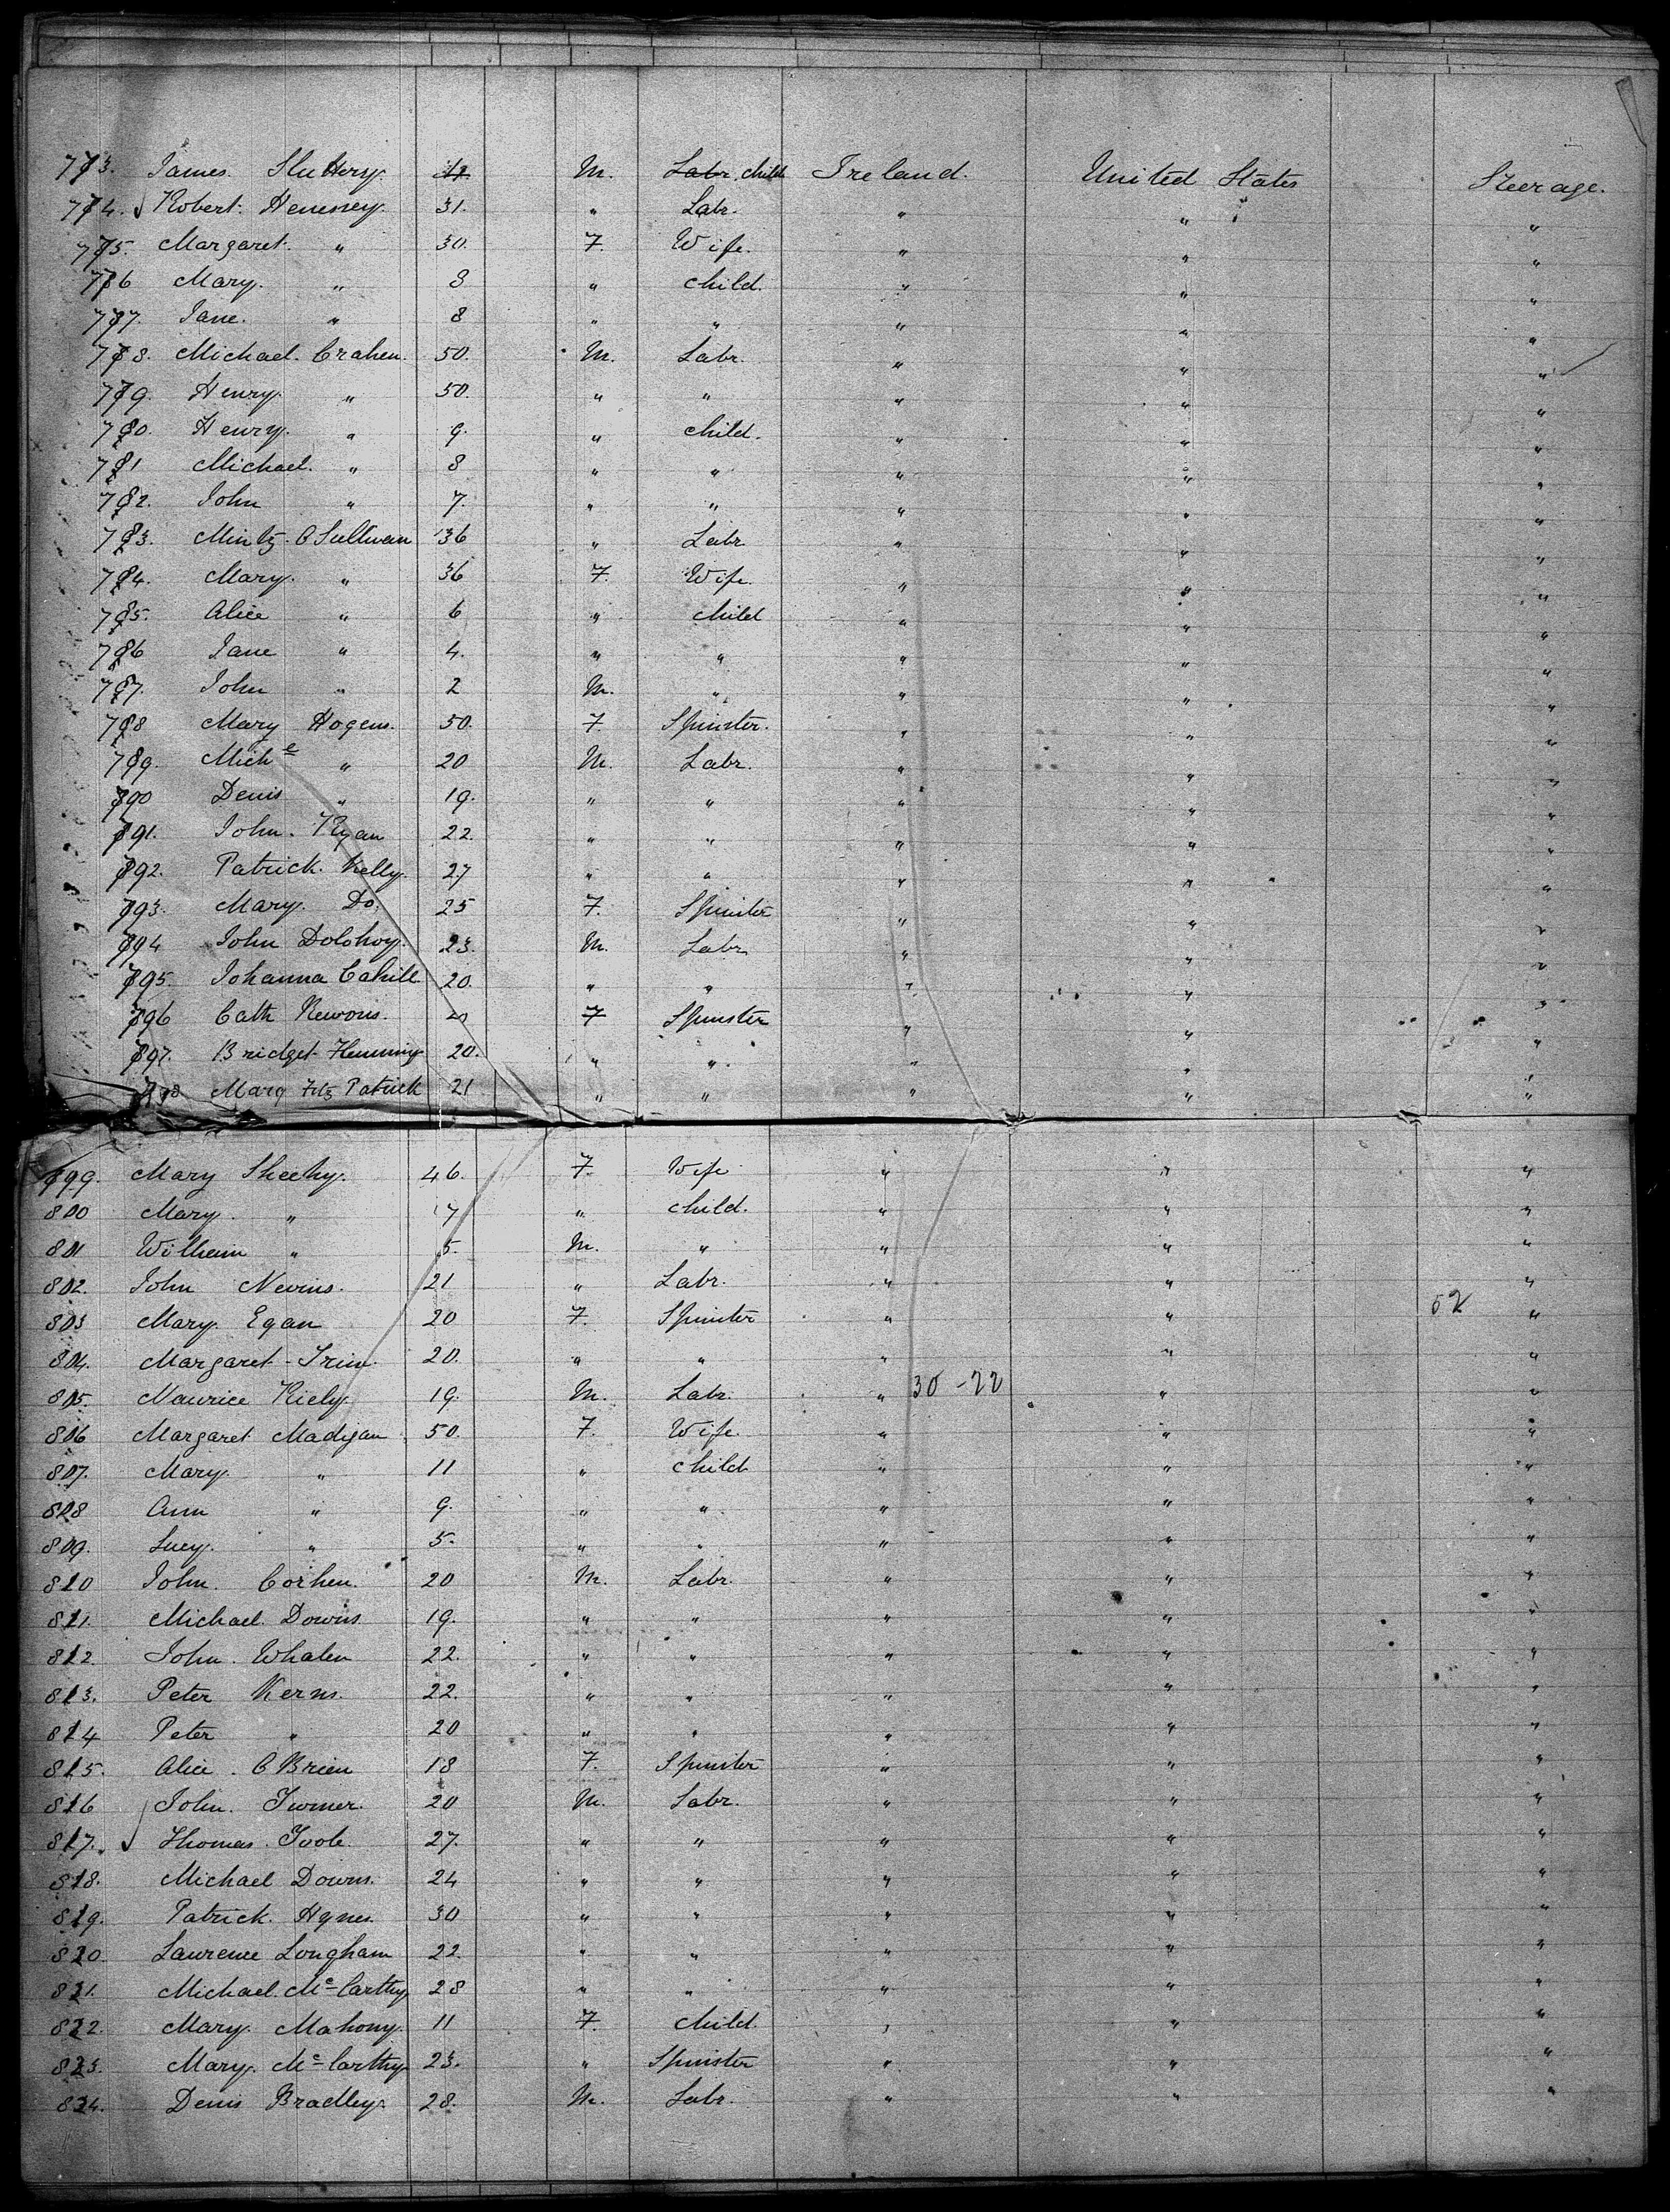 773. James. Sluttery. M. Labr. child Ireland. United States Steerage.
774. Robert. Henessey. 31. " Labr. " " "
775. Margaret. " 30. F. Wife. " " "
776 Mary. " 8 " child. " " "
777. Jane. " 8 " " " " "
778. Michael. Crahen. 50. M. Labr. " " "
779. Henry. " 50. " " " " "
780. Henry. " 9. " child. " " "
781 Michael. " 8 " " " " "
782. John " 7. " " " " "
783. O Sullivan 36 " Labr " " "
784. Mary. " 36 F. Wife. " " "
785. Alice " 6 " child " " "
786 Jane " 4. " " " " "
787. John " 2 M. " " " "
788 Mary Hogens. 50. F. Spinster. " " "
789. Miche " 20 M. Labr. " " "
790 Denis " 19. " " " " "
791. John. Ryan 22. " " " " "
792. Patrick. Kelly. 27 " " " " "
793. Mary. Do. 25 F. Spinster " " "
794 John Dolohoy. 23. M. Labr " " "
795. Johanna Cahill 20. " " " " "
796 Cath Newons. 20 F Spinster " " "
797. Bridget Flemming 20. " " " " "
798 Marg Fitz Patrick 21 " " " " "
799. Mary Sheehy. 46. F. Wife " " "
800 Mary. " 7 " child. " " "
801 Wilheim " 5. M. " " " "
802. John Nevins. 21 " Labr. " " "
803 Mary. Egan 20 F. Spinster " " 52 "
804. Margaret - Trim. 20. " " " " "
805. Maurice Kiely. 19. M. Labr. " 30 - 22 " "
806 Margaret Madigan 50. F. Wife. " " "
807. Mary. " 11 " child " " "
808 Ann " 9. " " " " "
809. Lucy. " 5. " " " " "
810 John. Corhen. 20 M. Labr. " " "
811. Michael. Downs 19. " " " " "
812. John. Whalen 22. " " " " "
813. Peter Kerns. 22. " " " " "
814 Peter " 20 " " " " "
815. Alice. O Brien 18 F. Spinster " " "
816 John. Turner. 20 M. Labr. " " "
817. Thomas. Toole. 27. " " " " "
818. Michael Downs. 24 " " " " "
819. Patrick. Hynes. 30 " " " " "
820. Laurence Longham 22. " " " " "
821. Michael. Mc Carthy 28 " " " " "
822. Mary. Mahony. 11 F. child. " " "
823. Mary. Mc Carthy 23. " Spinster " " "
824. Denis Bradley. 28. M. Labr. " " "